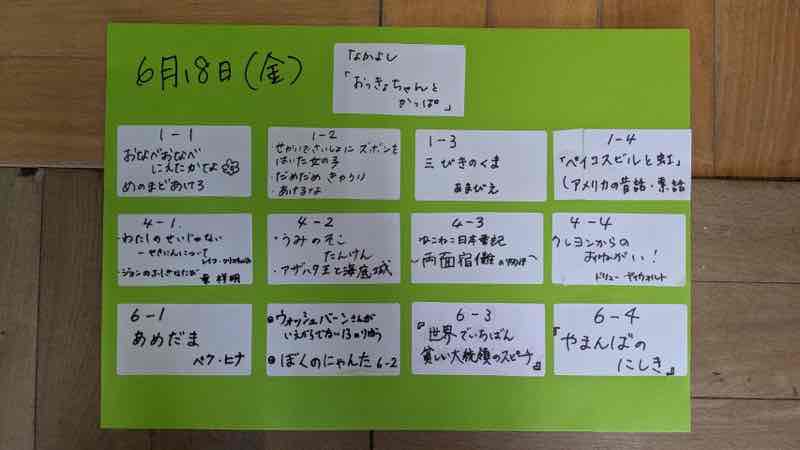 6月18日(金)
「なかよし
「おっきょちゃんと
かっぱ」
1-1
おなべおなべ
にえたかな
めのまどあけろ
1-2
・せかいでさいしょに ズボンを
はいた女の子
・だめだめ きゅうり
・あけるよ
1-3
三 びきのくま
あまびえ
1-4
「ペイコスビルと虹」
(アメリカの昔話・素話
4-1
・わたしのせいじゃない
-せきにんについて
・ジョンのふしぎなたび
葉 祥明
4-2
・うみのそこ
たんけん
・アザハタ王と海底城
4-3
ねこねこ日本書紀
~両面宿儺
4-4
クレヨンからの
おねがい!
ドリュー デイウォルト
6-1
あめだま
ペク・ヒナ
・ウォッシュバーンさんが
いえからでない13のりゆう
・ぼくのにゃんた 6-2
6-3
『世界でいちばん
貧しい大統領のスピーチ』
6-4
『やまんばの
にしき』